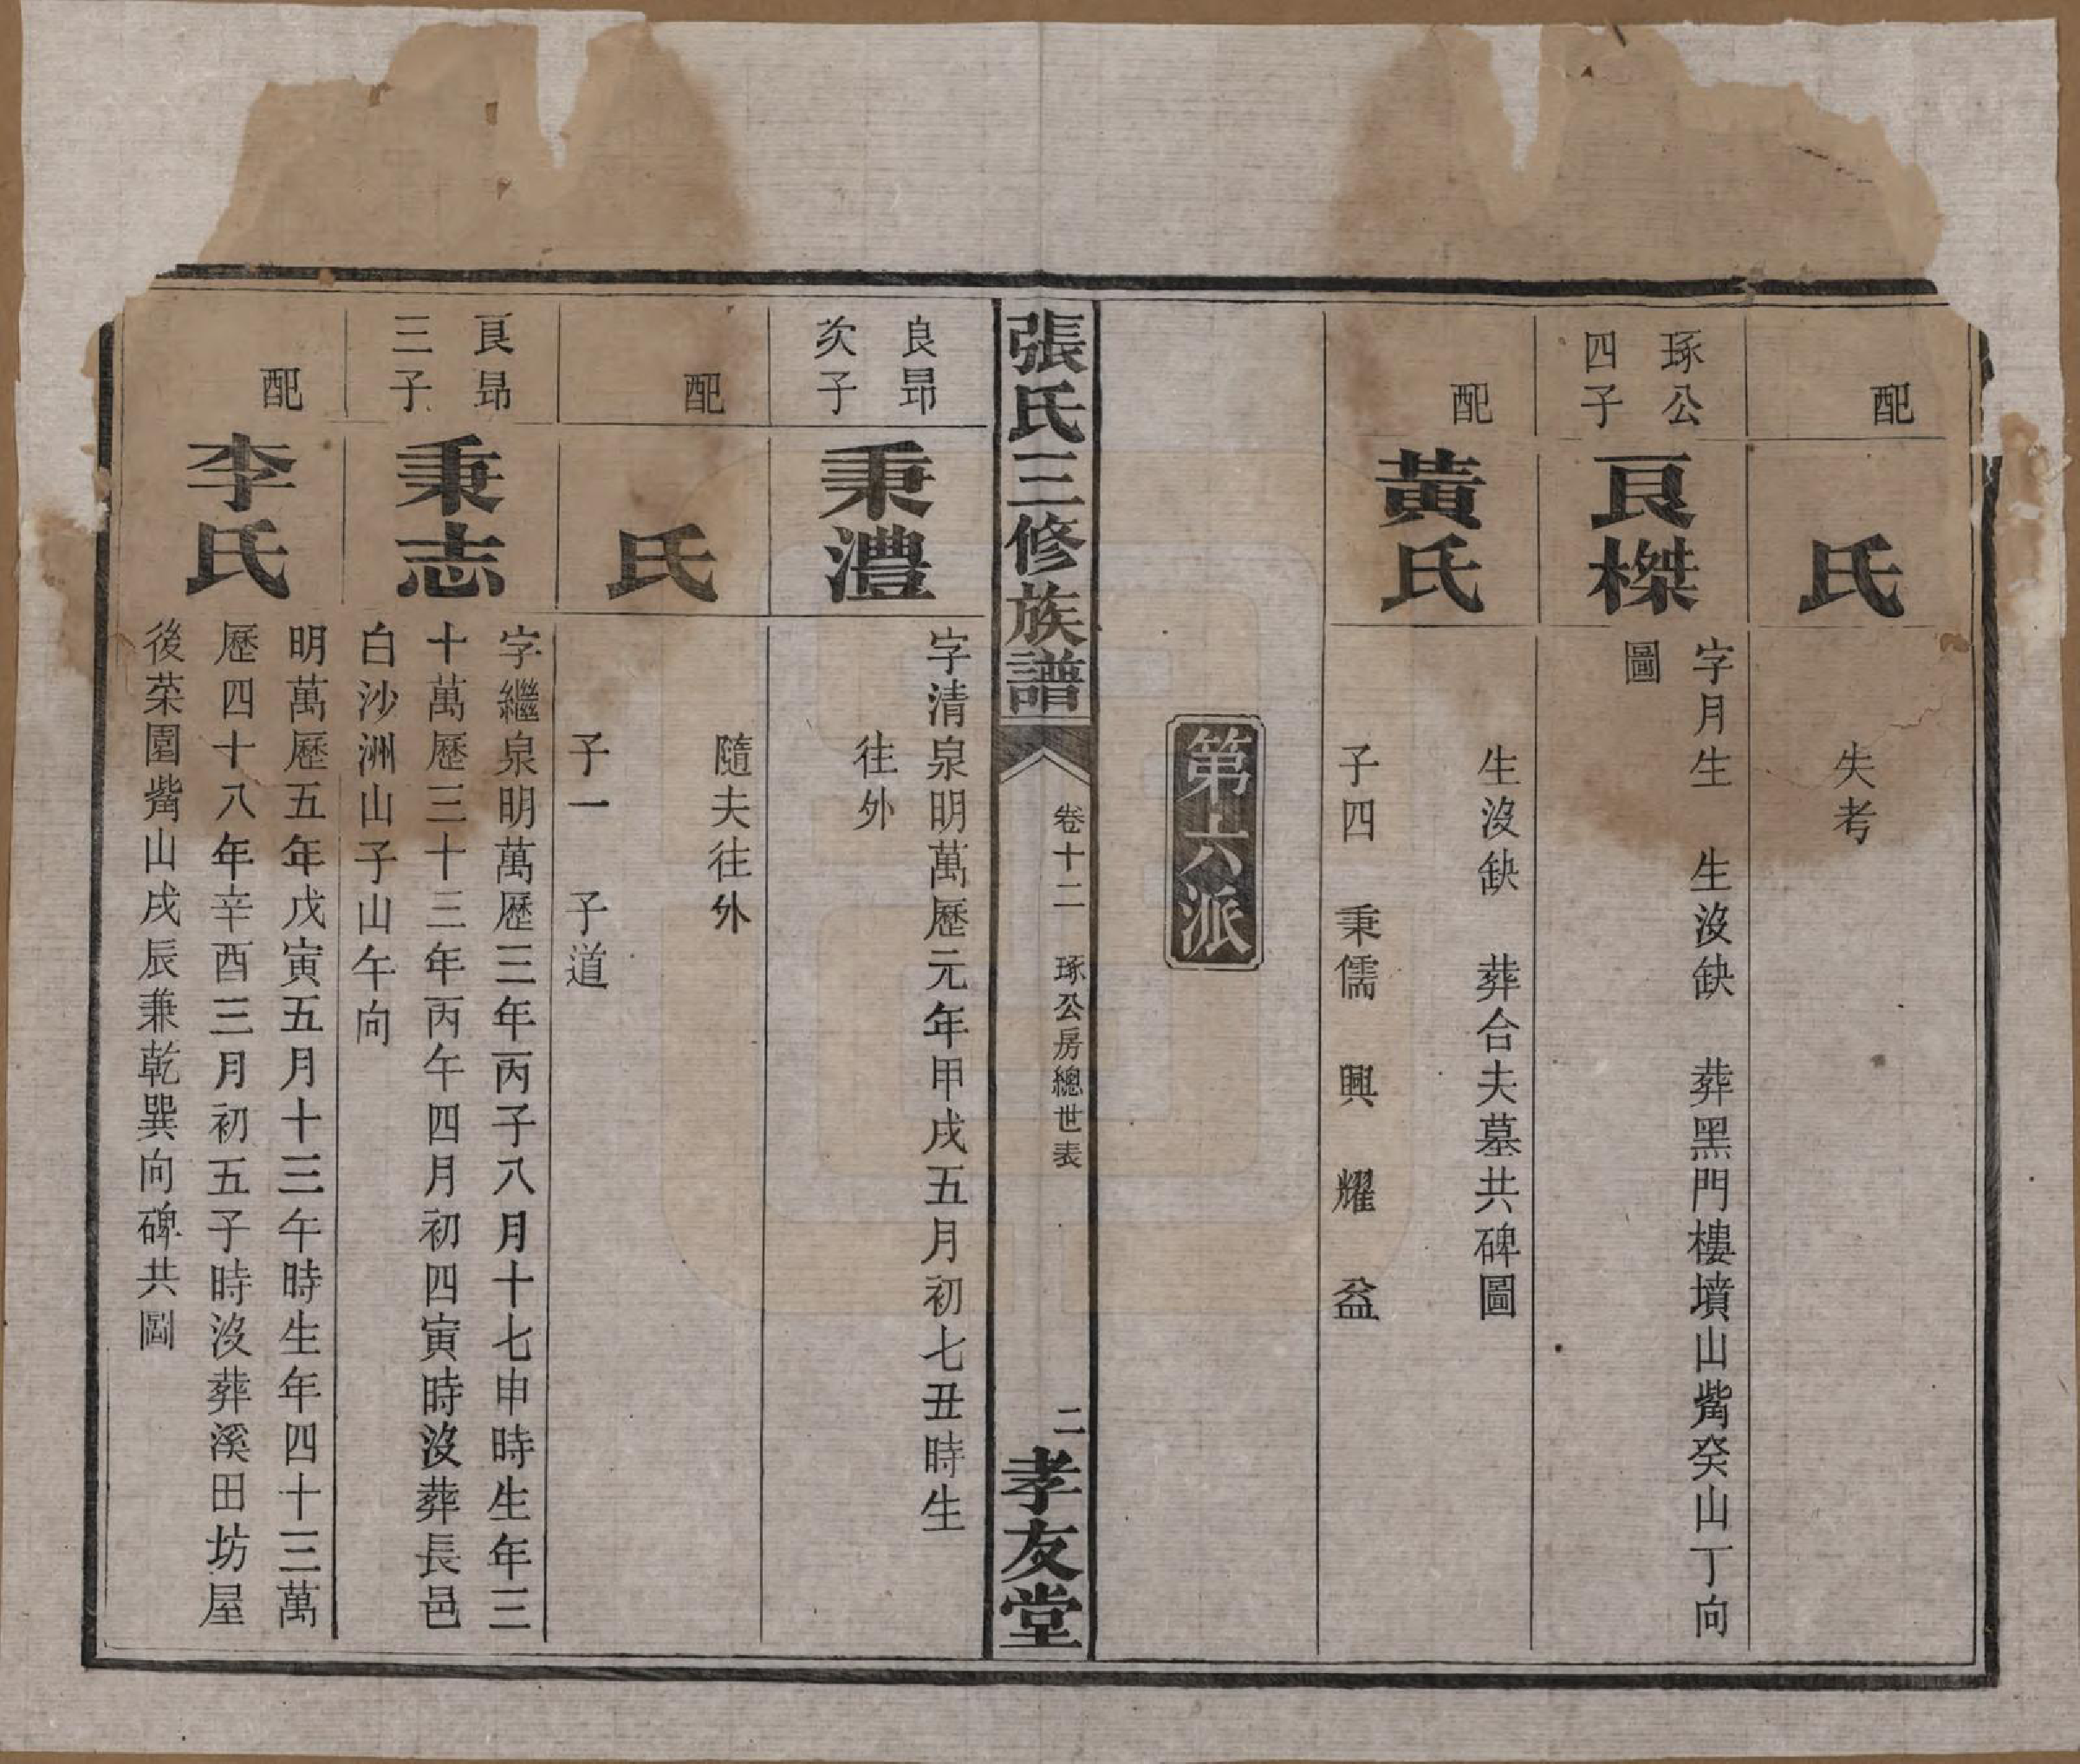 配
氏
失考
琢公
四子
良榤
字月生　生沒缺　葬黑門樓墳山觜癸山丁向
圖
配
黃氏
生沒缺　葬合夫墓共碑圖
子四　秉儒　興　耀　益
第六派
張氏三修族譜
卷十二　琢公房總世表
二
孝友堂
良昻
次子
秉澧
字清泉明萬歷元年甲戌五月初七丑時生
往外
配
氏
隨夫往外
子一　子道
良昻
三子
秉志
字繼泉明萬歷三年丙子八月十七申時生年三
十萬歷三十三年丙午四月初四寅時沒葬長邑
白沙洲山子山午向
配
李氏
明萬歷五年戊寅五月十三午時生年四十三萬
歷四十八年辛酉三月初五子時沒葬溪田坊屋
後菜園觜山戌辰兼乾巽向碑共圖